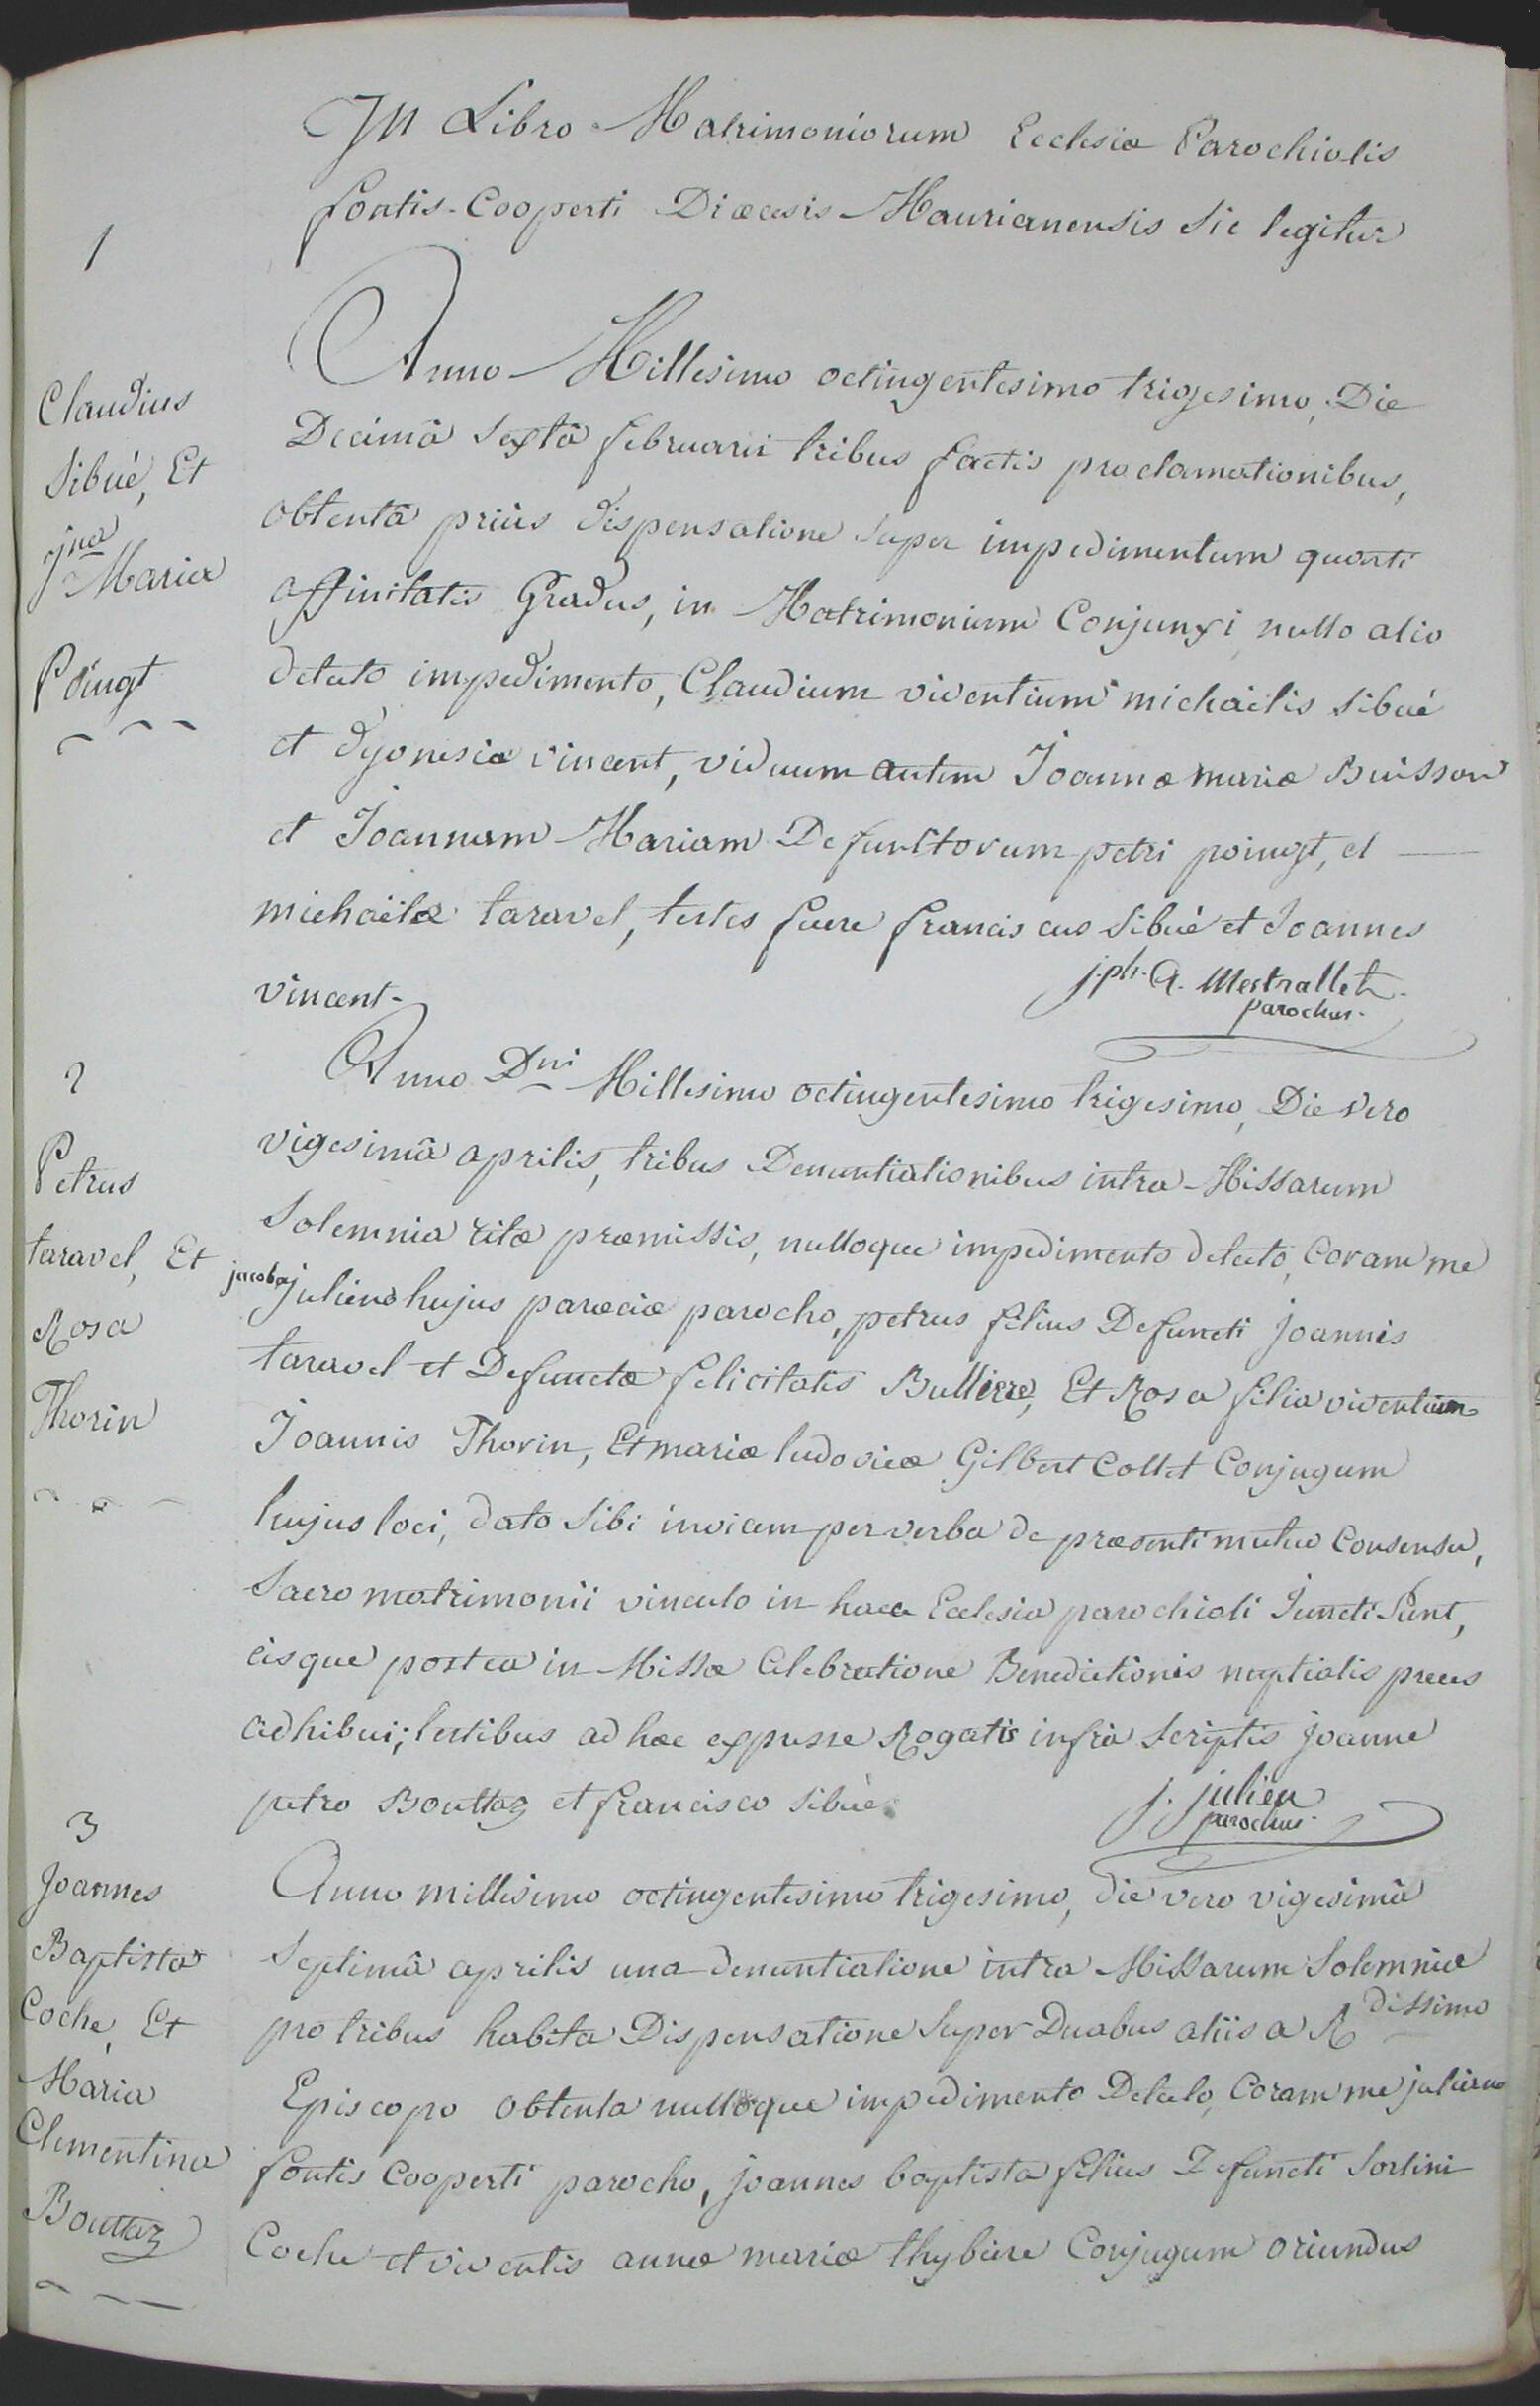 In Libro Matrimoniorum Ecclesiæ Parochialis
fontis-Cooperti Diœcesis Maurianensis Sic legitur
1
Claudius
Sibué, Et
Jna
Maria
Poingt
Anno Millesimo octingentesimo trigesimo, Die
Decimâ Sextâ februarii tribus factis proclamationibus,
obtentâ priùs dispensatione super impedimentum quarti
affinitatis Gradus, in Matrimonium Conjunxi nullo alio
detecto impedimento, Claudium viventium michaëlis Sibué
et dyonisiæ vincent, viduum autem Joannæ mariæ Buisson
et Joannam Mariam Defunctorum petri poingt, et
michaëlæ taravel, testes fuere franciscus Sibué et Joannes
vincent.
j.ph. A. Mestrallet
parochus.
2
Petrus
taravel, Et
Rosa
Thorin
Anno Dni Millesimo octingentesimo trigesimo, Die vero
vigesimâ aprilis, tribus Denuntiationibus intra Missarum
Solemnia ritè præmissis, nulloque impedimento detecto, Coram me
jacobo julieno hujus parœciæ parocho, petrus filius Defuncti Joannis
taravel et Defunctæ felicitatis Bullierre, Et Rosa filia viventium
Joannis Thorin, Et mariæ ludovicæ Gilbert Collet Conjugum
hujus loci, dato Sibi invicem per verba de præsenti mutuo Consensu,
Sacro matrimonii vinculo in hacce Ecclesiâ parochiali Juncti Sunt,
eisque postea in Missæ Celebratione Benedictionis nuptialis preces
adhibui; testibus ad hoc expresse Rogatis infrà Scriptis Joanne
petro Bouttaz et francisco Sibué.
j. julien
parochus.
3
Joannes
Baptista
Coche, Et
Maria
Clementina
Bouttaz
Anno millesimo octingentesimo trigesimo, die vero vigesimâ
Septimâ aprilis una denuntiatione intra Missarum Solemnia
pro tribus habita Dispensatione Super Duabus aliis a Rdissimo
Episcopo obtenta nulloque impedimento Detecto, Coram me julieno
fontis Cooperti parocho, joannes baptista filius Defuncti Sorlini
Coche et viventis annæ mariæ thybiere Conjugum oriundus